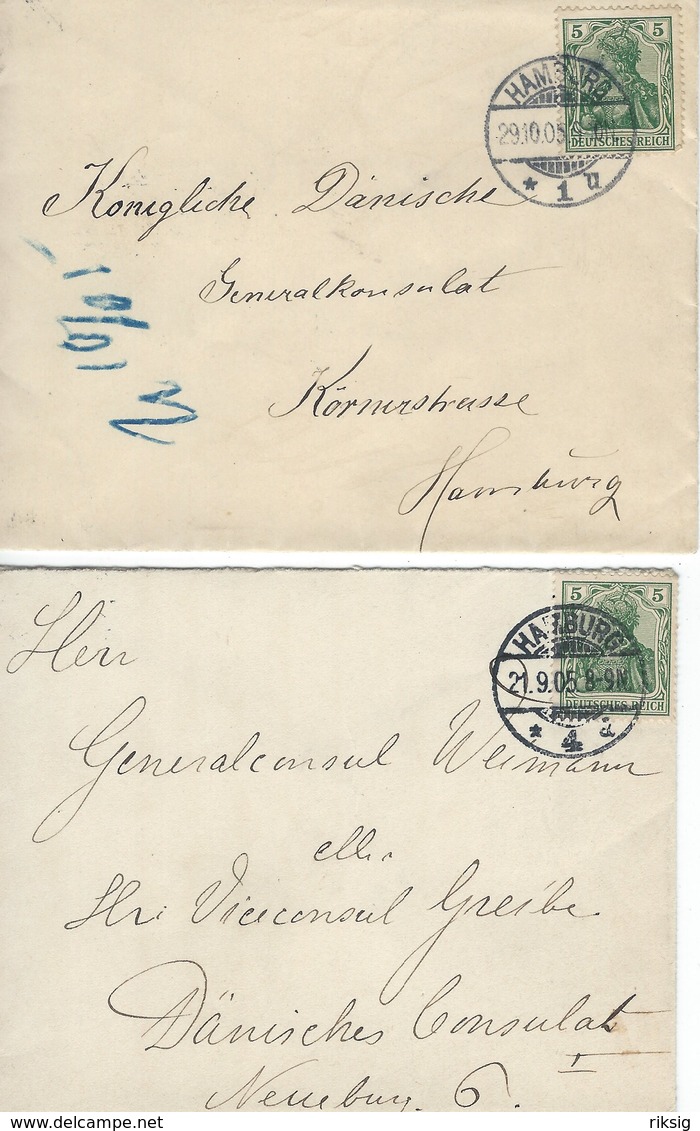 5 5
DEUTSCHES REICH
HAMBURG
29.10.05
* 1 u
Königliche Dänische
Generalkonsulat
Körnerstrasse
Hamburg
5 5
DEUTSCHES REICH
HAMBURG
21.9.05 8-9N
* 4 d
Herr
Generalconsul Weimann
eller
Hr: Viceconsul Greibe
Dänisches Consulat
I
Neueburg. 6.
www.delcampe.net
riksig